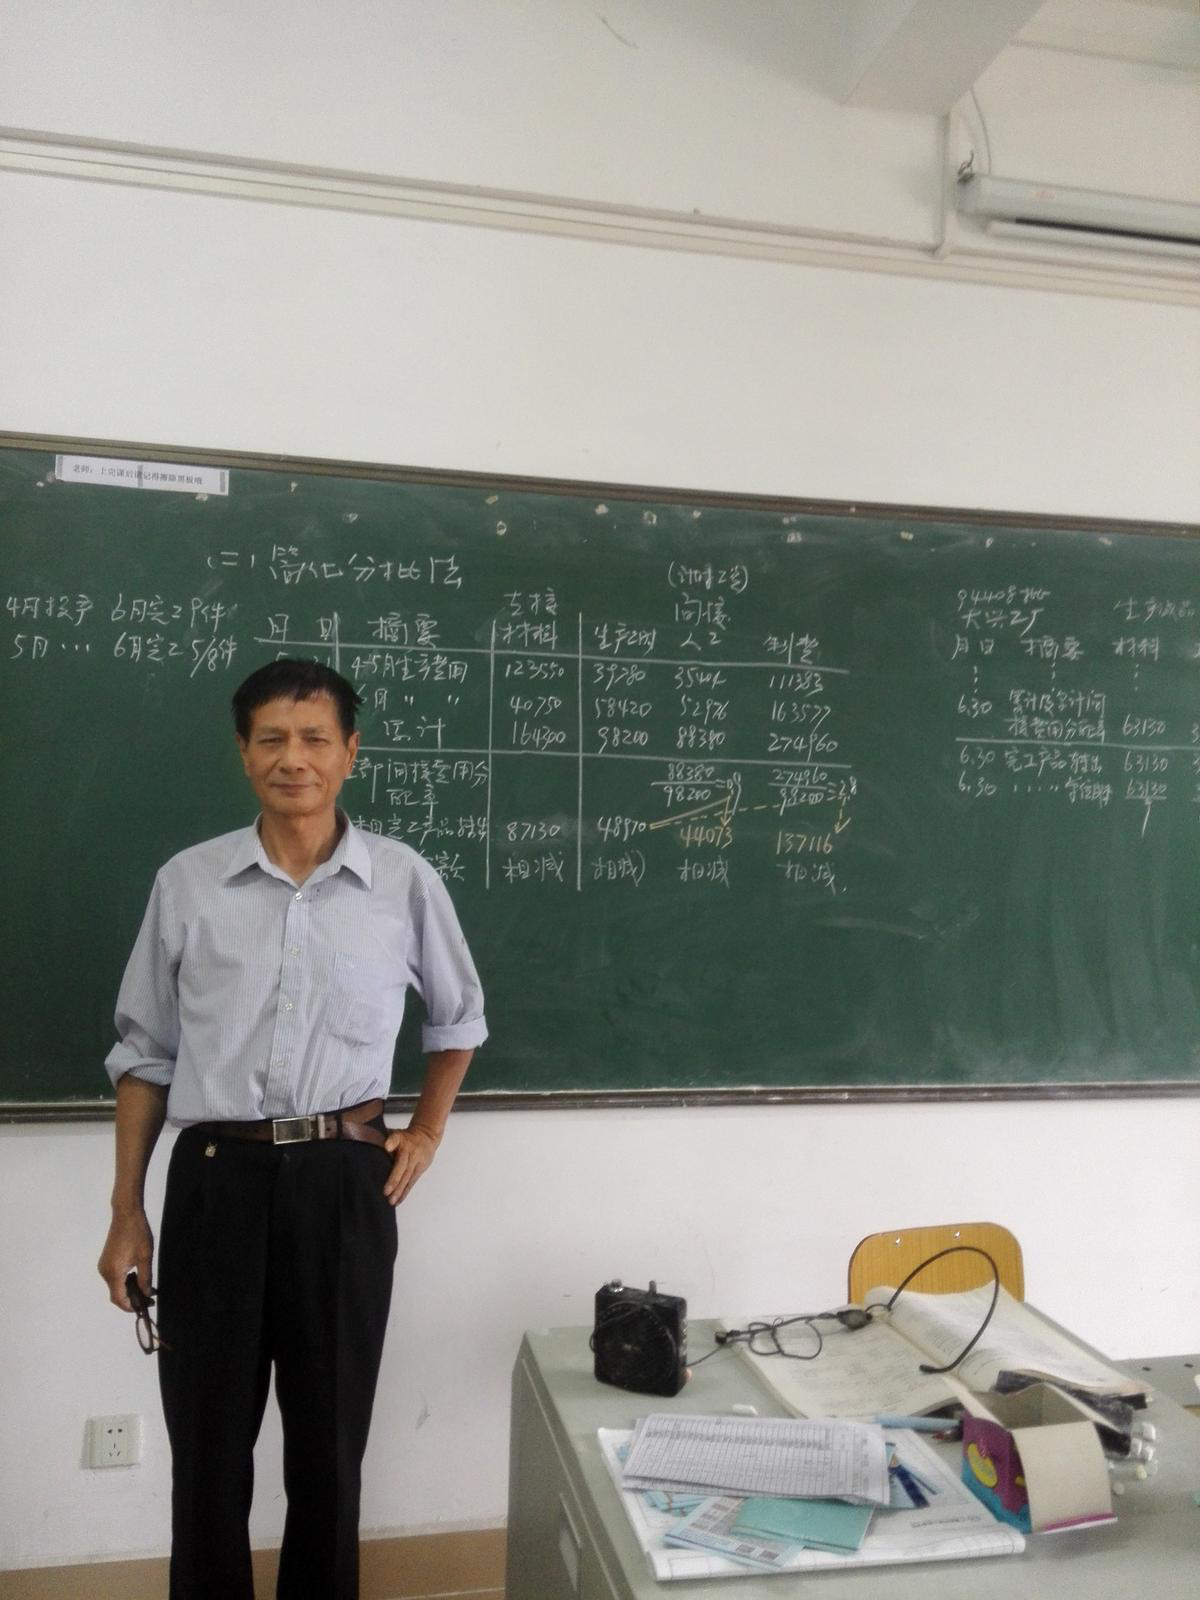 老师：上完课后请记得擦除黑板哦
(二) 简化分批法
4月投产 6月完工9件
5月… 6月完工5/8件
(计时工资)
直接 间接
月 日 摘要 材料 生产工时 人工 制费
4-5月生产费用 123550 39780 35404 111383
6月 〃 〃 40750 58420 52976 163577
累计 164300 98200 88380 274960
部间接费用分 88380/98200=0.9 274960/98200=2.8
配率
完工产品转出 87130 48970 44073 137116
余额 相减 相减) 相减 相减.
9440号批
大兴工厂 生产成品
月 日 摘要 材料
6.30 累计及累计间
接费用分配率 63130
6.30 完工产品转出 63130
6.30 ····· 单位成本 63130/9